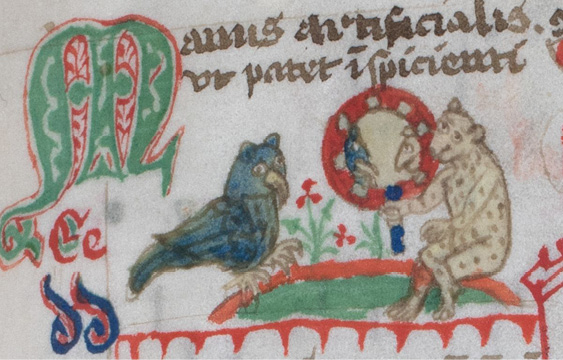 Manus artificialis.
vt patet īspicienti
Ee
dd